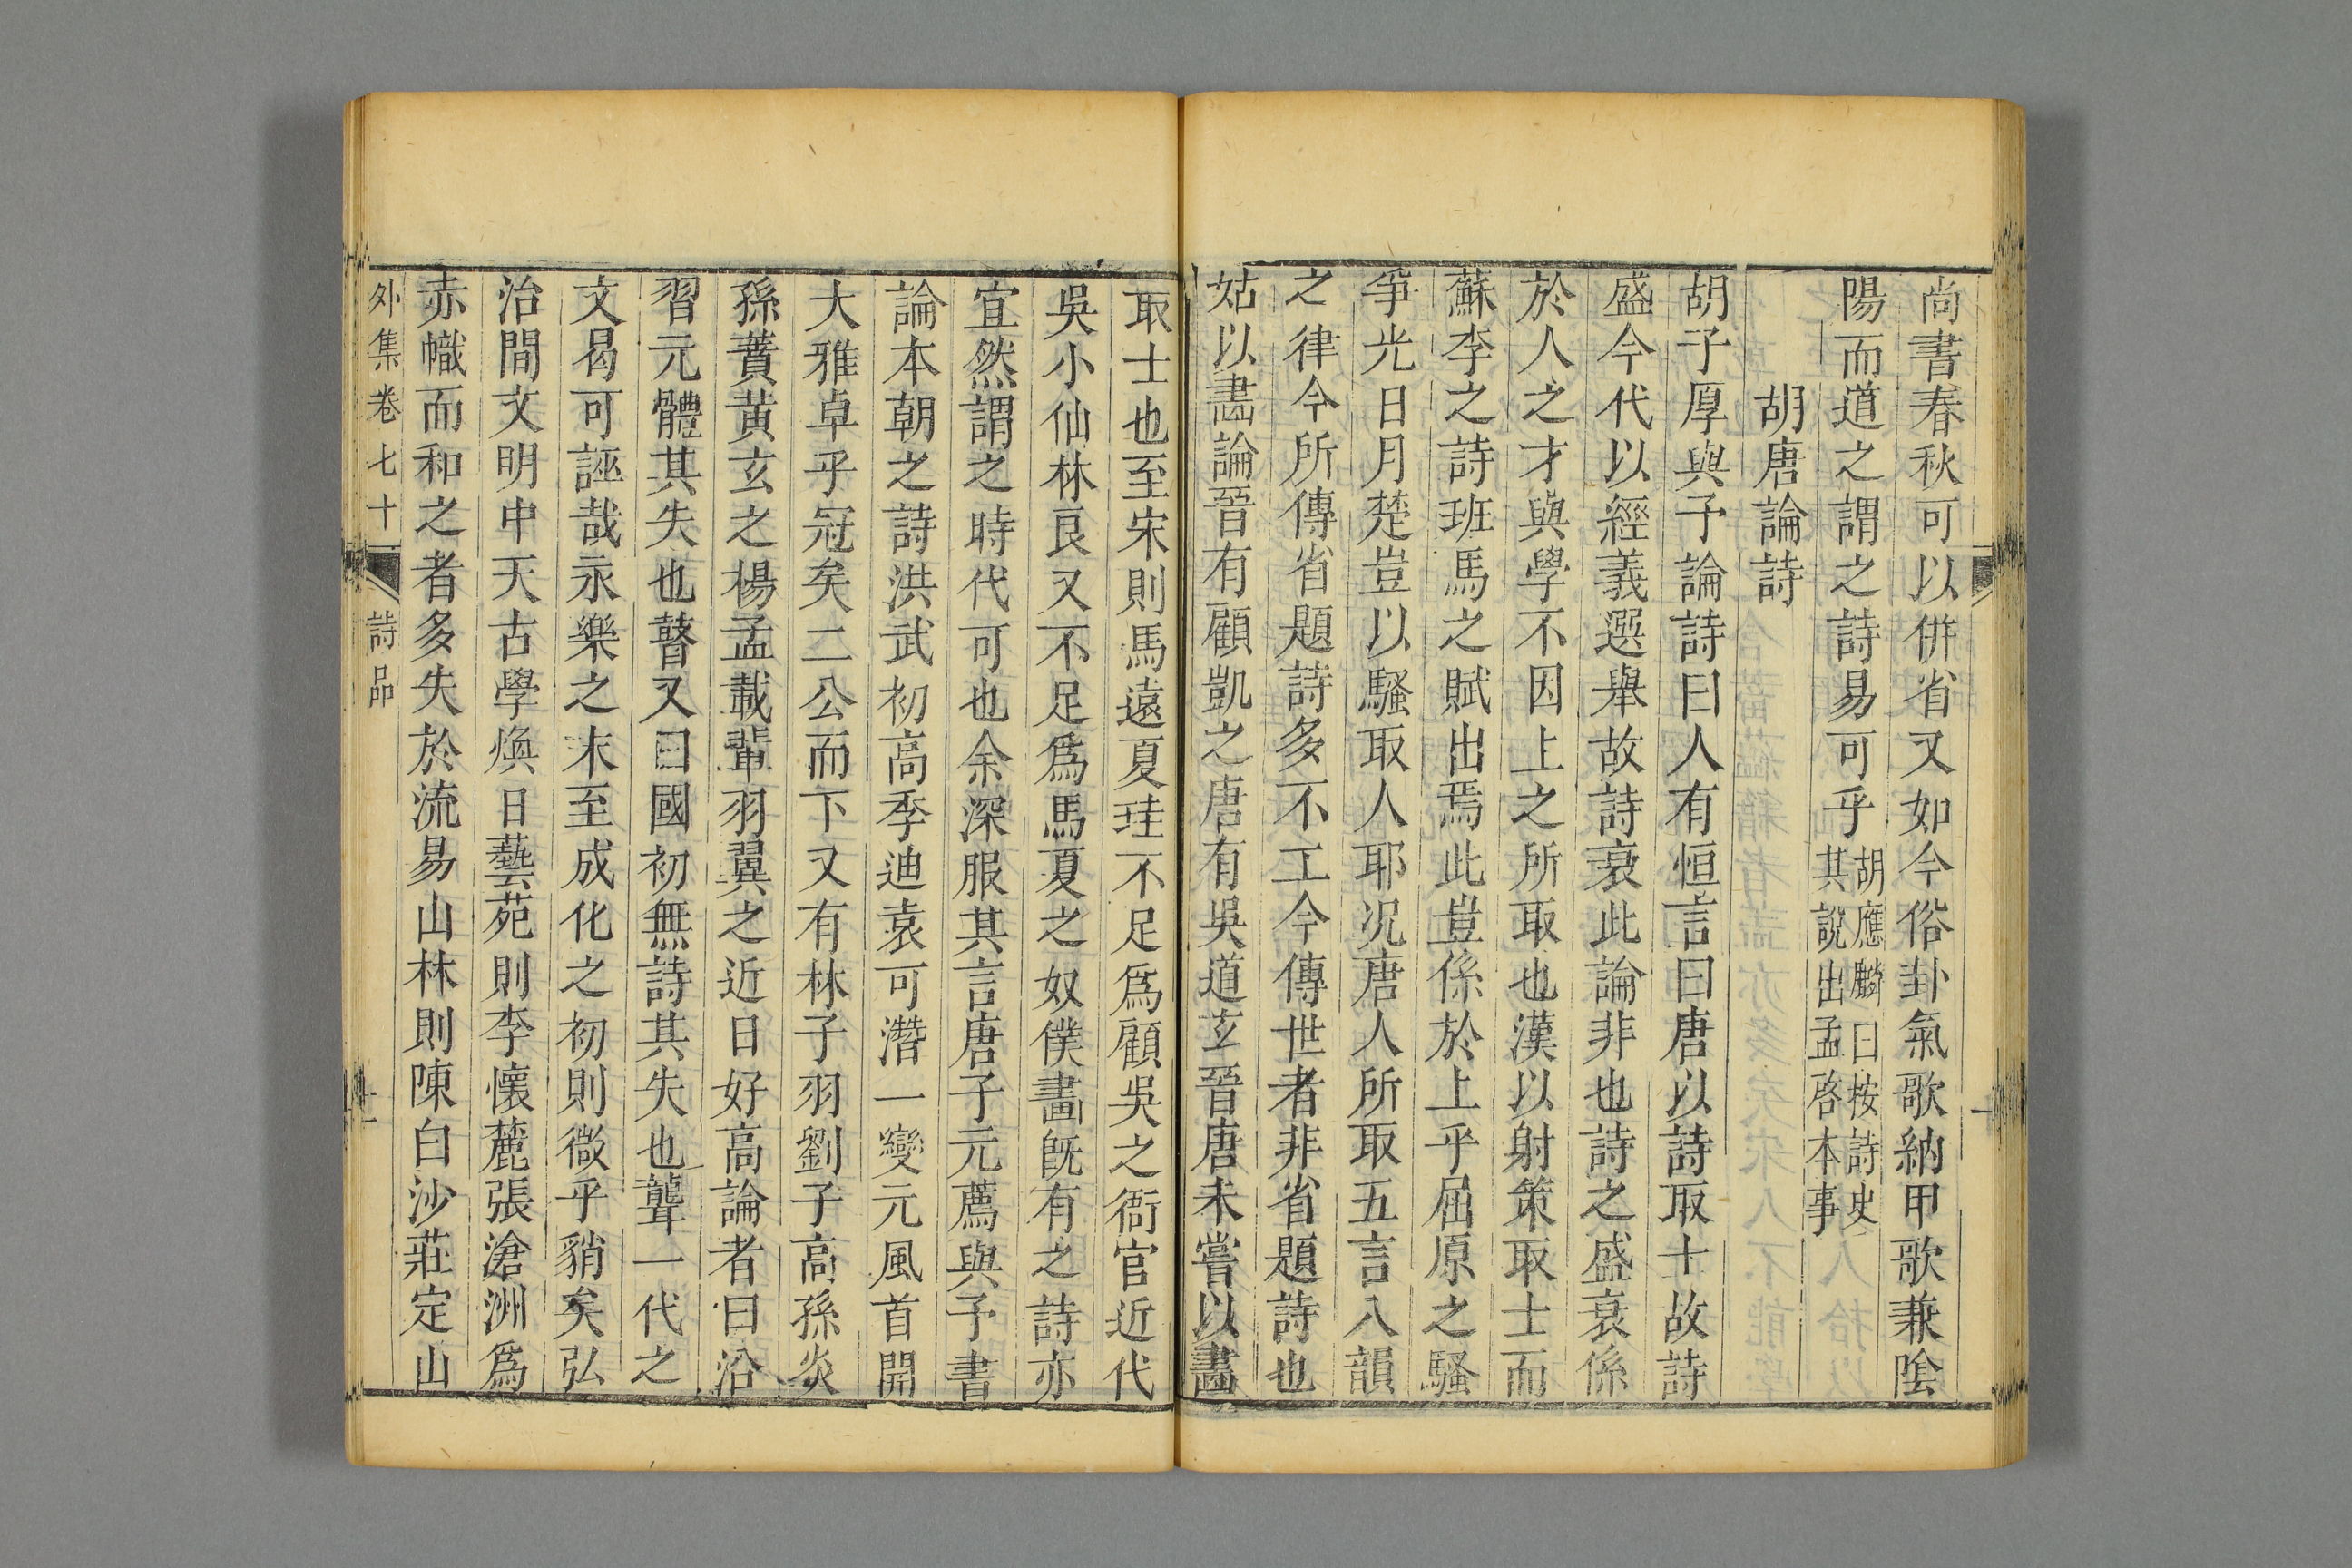 尚書春秋可以倂省又如今俗卦氣歌納甲歌兼陰
陽而道之謂之詩易可乎胡應麟曰按詩史
其說出孟啓本事
胡唐論詩
胡子厚與予論詩曰人有恒言曰唐以詩取士故詩
盛今代以經義選舉故詩衰此論非也詩之盛衰係
於人之才與學不因上之所取也漢以射策取士而
蘇李之詩班馬之賦出焉此豈係於上乎屈原之騷
爭光日月楚豈以騷取人耶况唐人所取五言八韻
之律今所傳省題詩多不工今傳世者非省題詩也
姑以畵論晉有顧凱之唐有吳道玄晉唐未嘗以畵
取士也至宋則馬遠夏珪不足爲顧吳之衙官近代
吳小仙林良又不足爲馬夏之奴僕畵旣有之詩亦
宜然謂之時代可也余深服其言唐子元薦與予書
論本朝之詩洪武初高季迪袁可潛一變元風首開
大雅卓乎冠矣二公而下又有林子羽劉子高孫炎
孫蕡黃玄之楊孟載輩羽翼之近日好高論者曰沿
習元體其失也瞽又曰國初無詩其失也聾一代之
文曷可誣哉永樂之末至成化之初則微乎藐矣弘
治間文明中天古學煥日藝苑則李懷麓張滄洲爲
赤幟而和之者多失於流易山林則陳白沙莊定山
外集卷七十 詩品